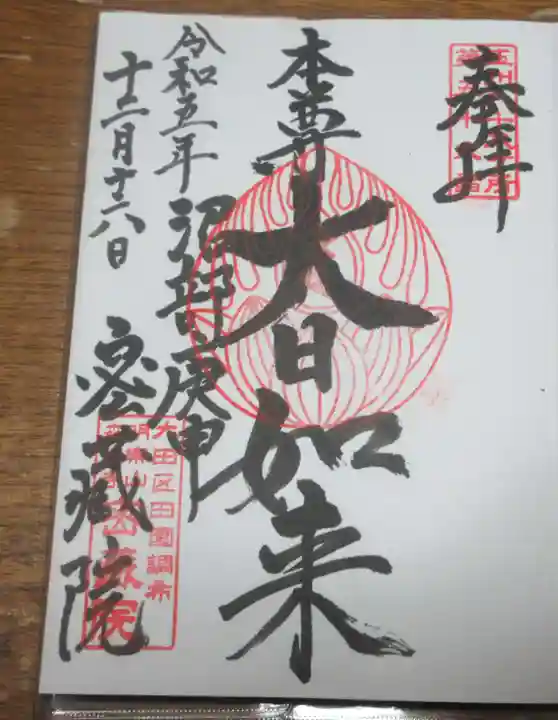 奉拝
本尊
大日如来
令和五年
十二月十六日
沼部庚申
密蔵院
大田区田園調布